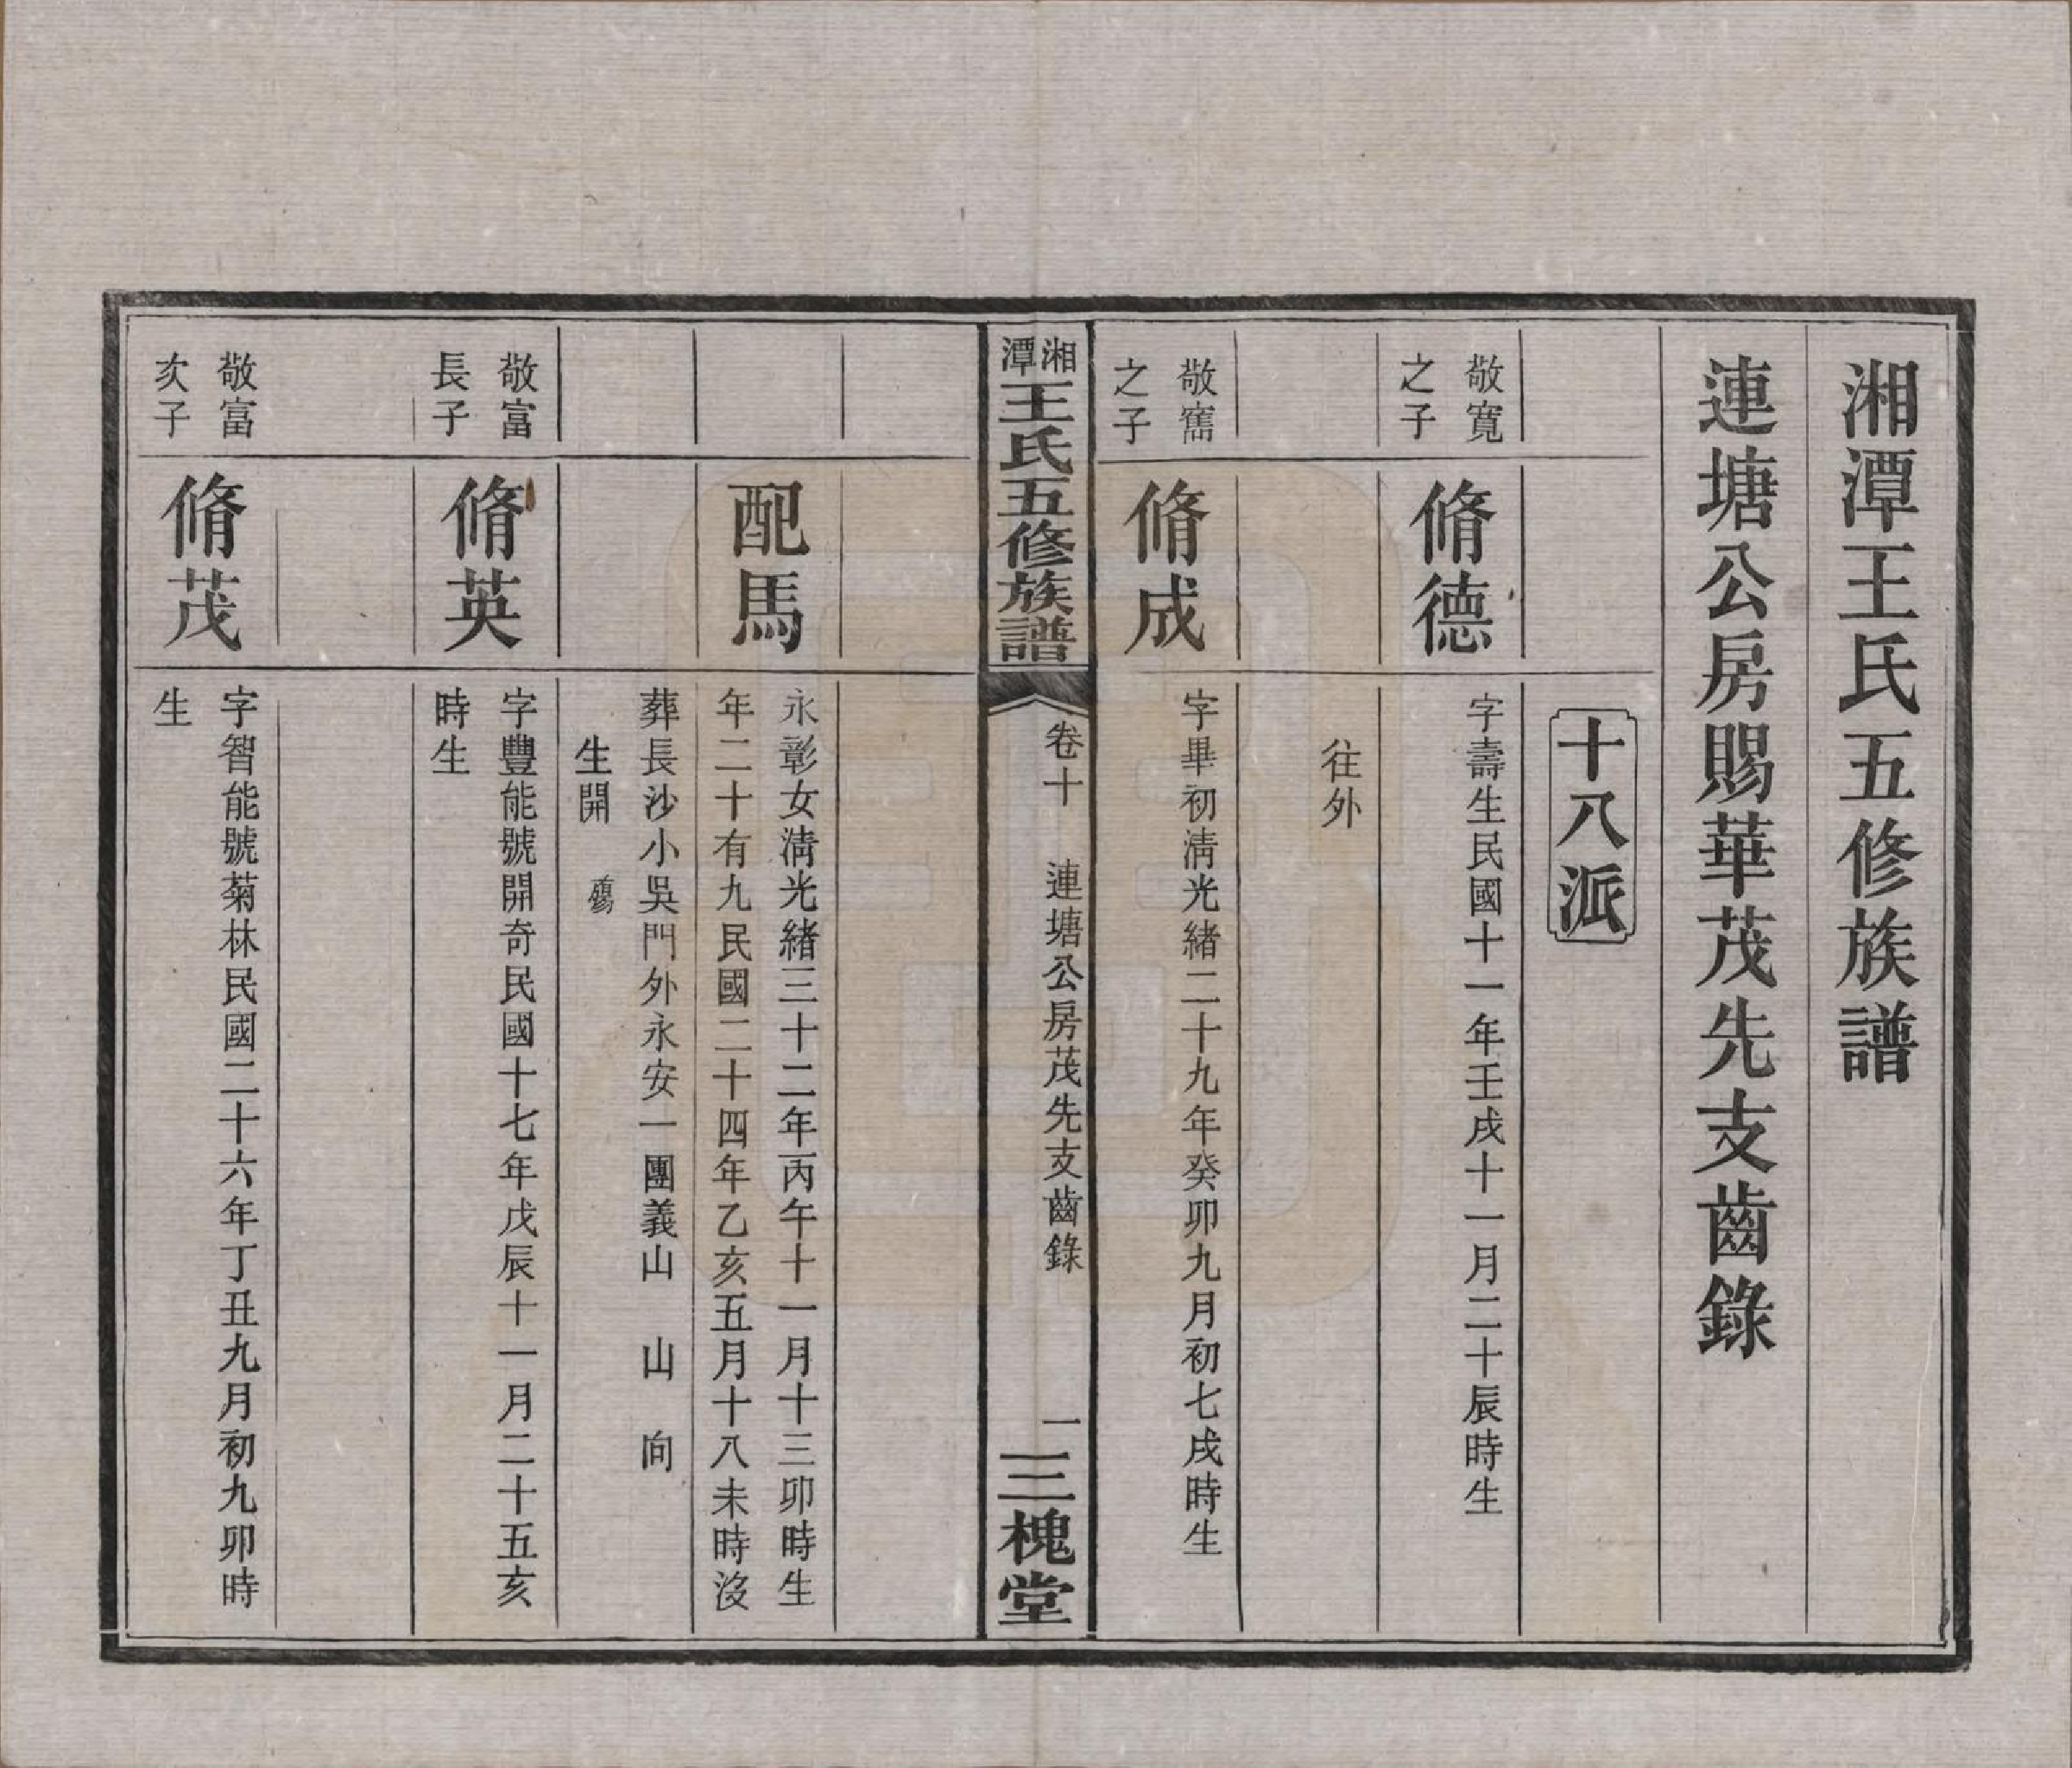 湘潭王氏五修族譜
連塘公房賜華茂先支齒錄
十八派
敬寬
之子
脩德
字壽生民國十一年壬戌十一月二十辰時生
往外
敬寯
之子
脩成
字畢初淸光緒二十九年癸卯九月初七戌時生
湘潭
王氏五修族譜
卷十　連塘公房茂先支齒錄
一
三槐堂
配馬
永彰女淸光緒三十二年丙午十一月十三卯時生
年二十有九民國二十四年乙亥五月十八未時沒
葬長沙小吳門外永安一團義山　山　向
生開
敬富
長子
脩英
字豐能號開奇民國十七年戊辰十一月二十五亥
時生
敬富
次子
脩茂
字智能號菊林民國二十六年丁丑九月初九卯時
生